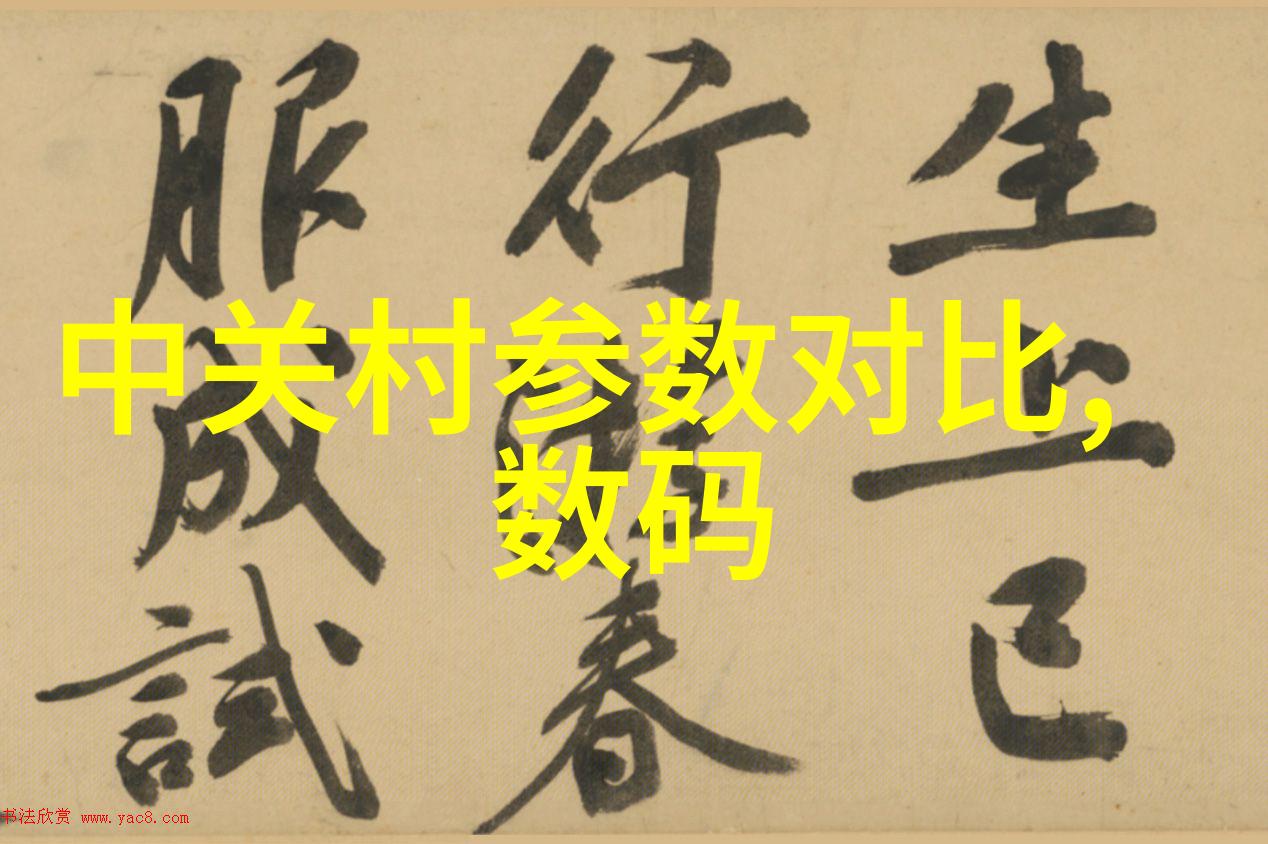 生上巳
行春
服成試
中关村参数对比,
数码
书法欣赏 www.yac8.com